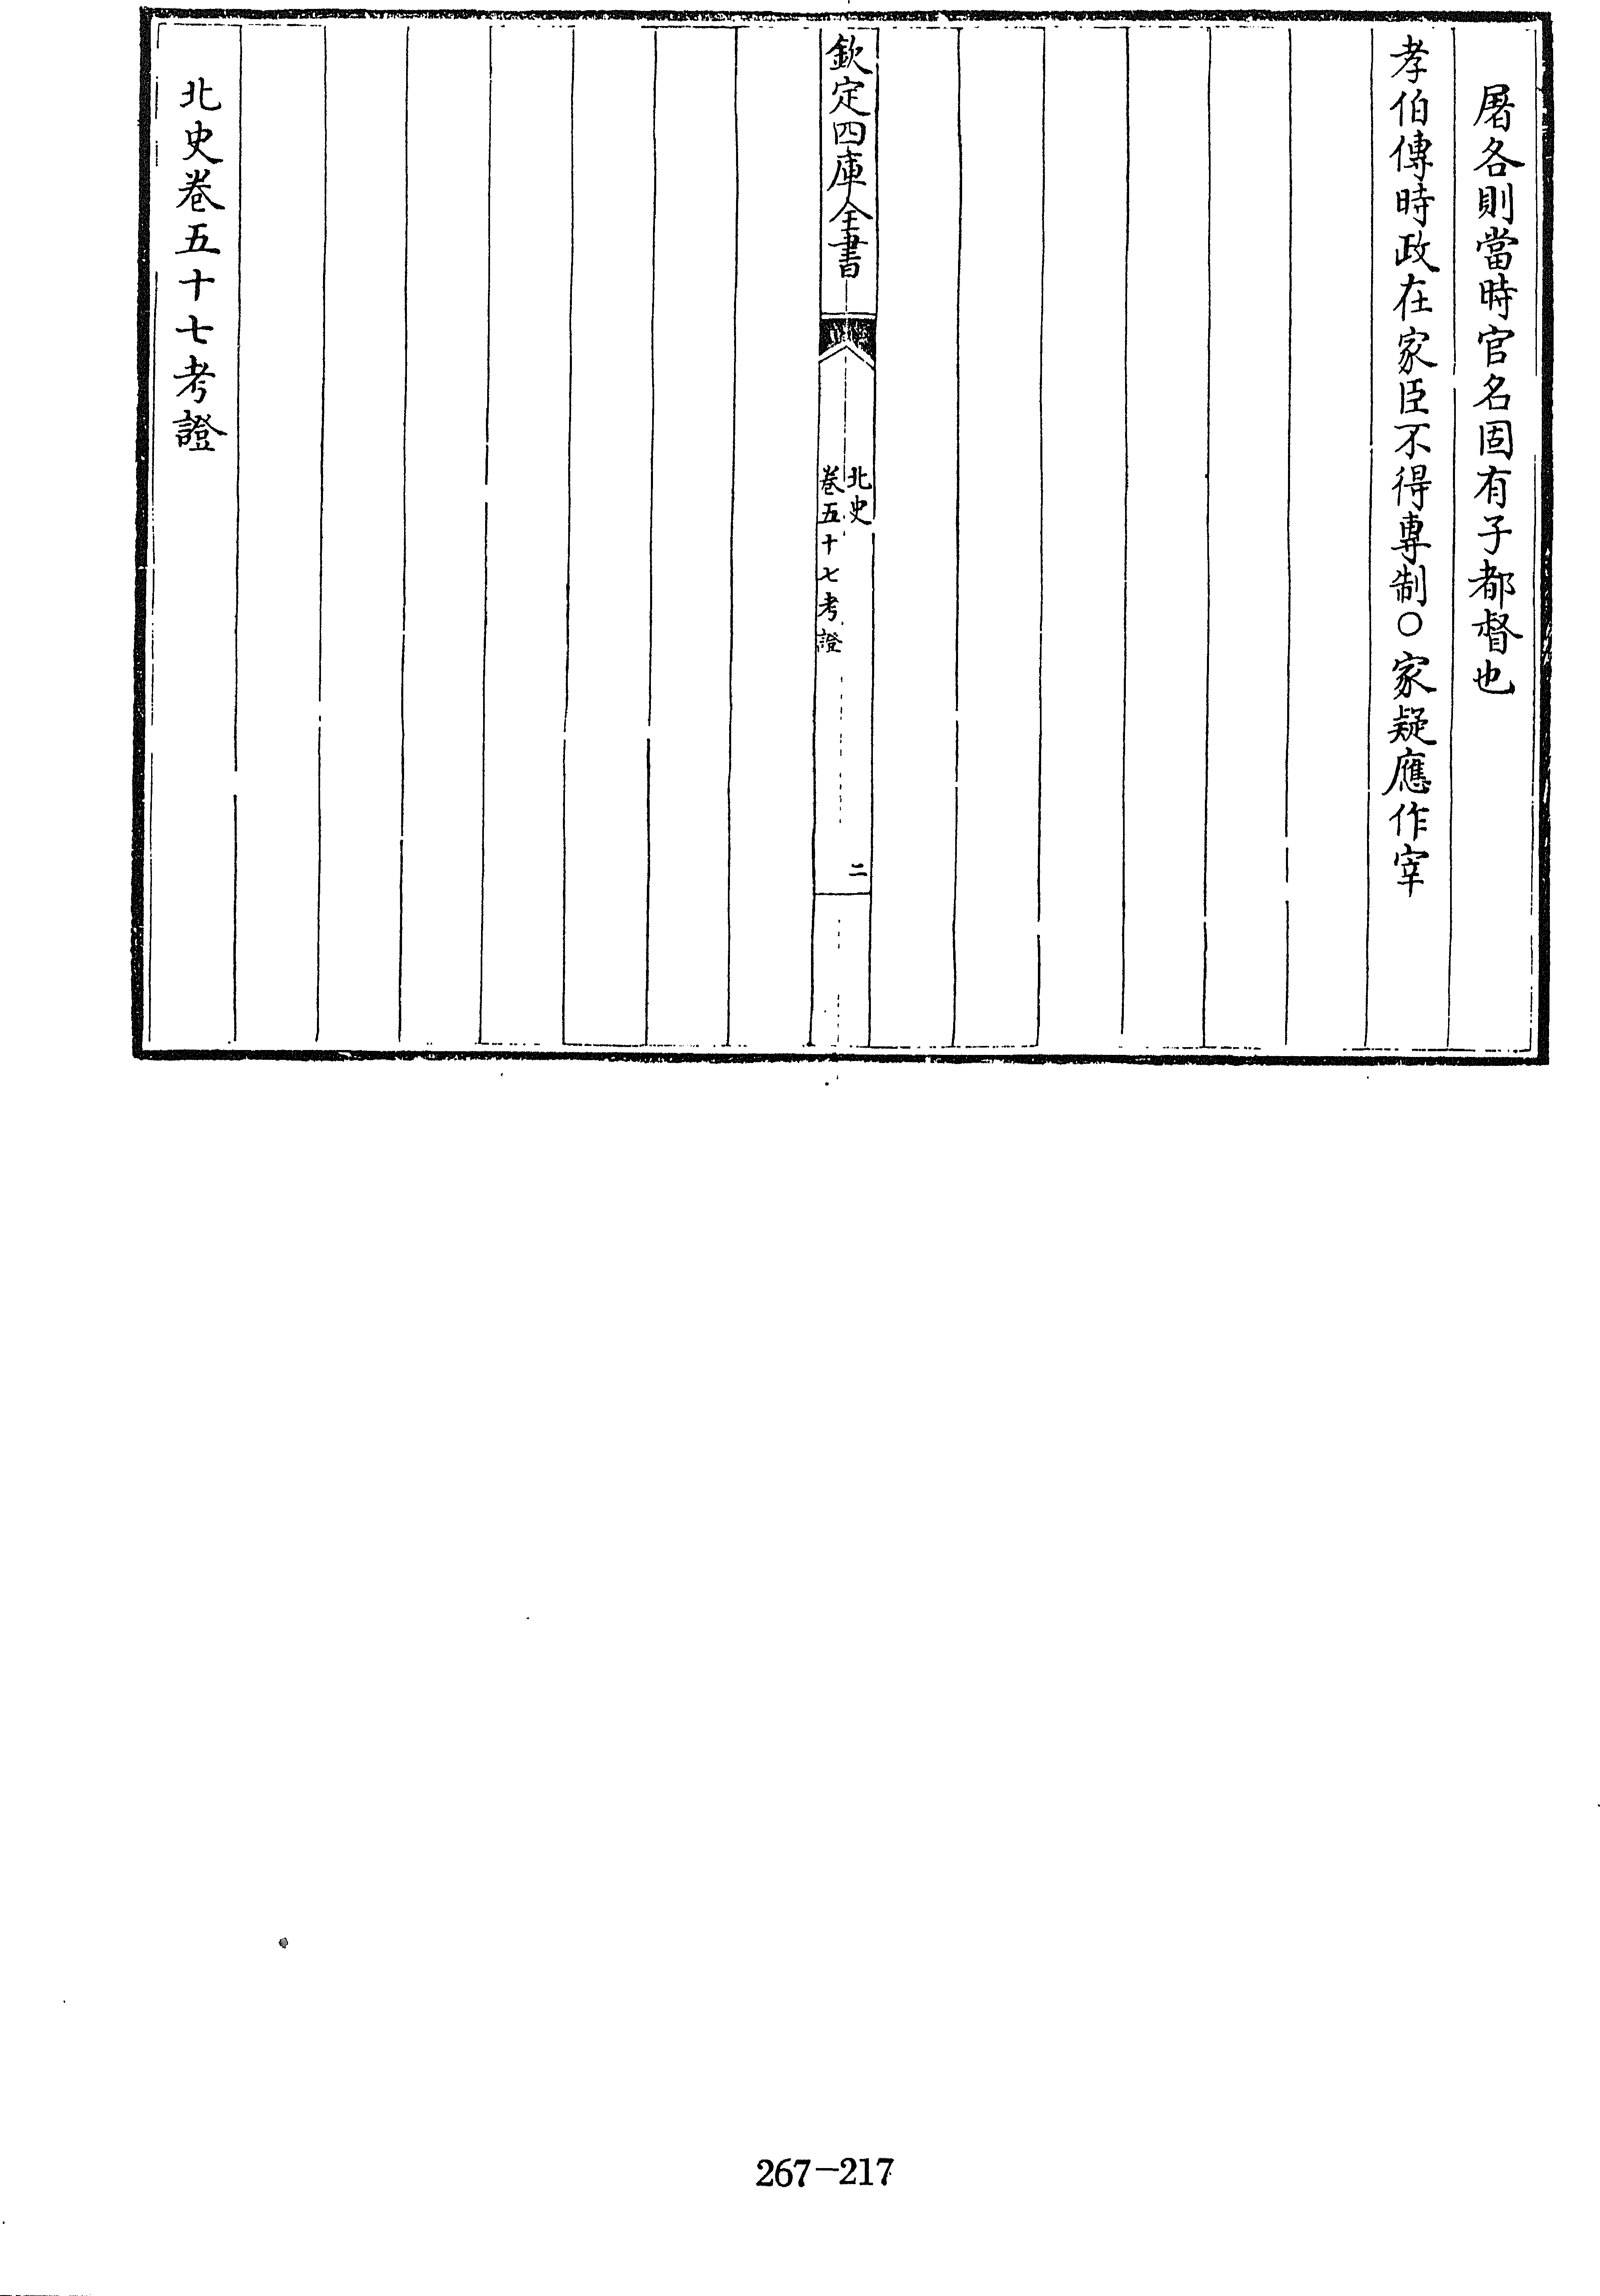 屠各則當時官名固有子都督也
孝伯傳時政在家臣不得專制○家疑應作宰
欽定四庫全書
北史
卷五十七考證
二
北史卷五十七考證
267-217